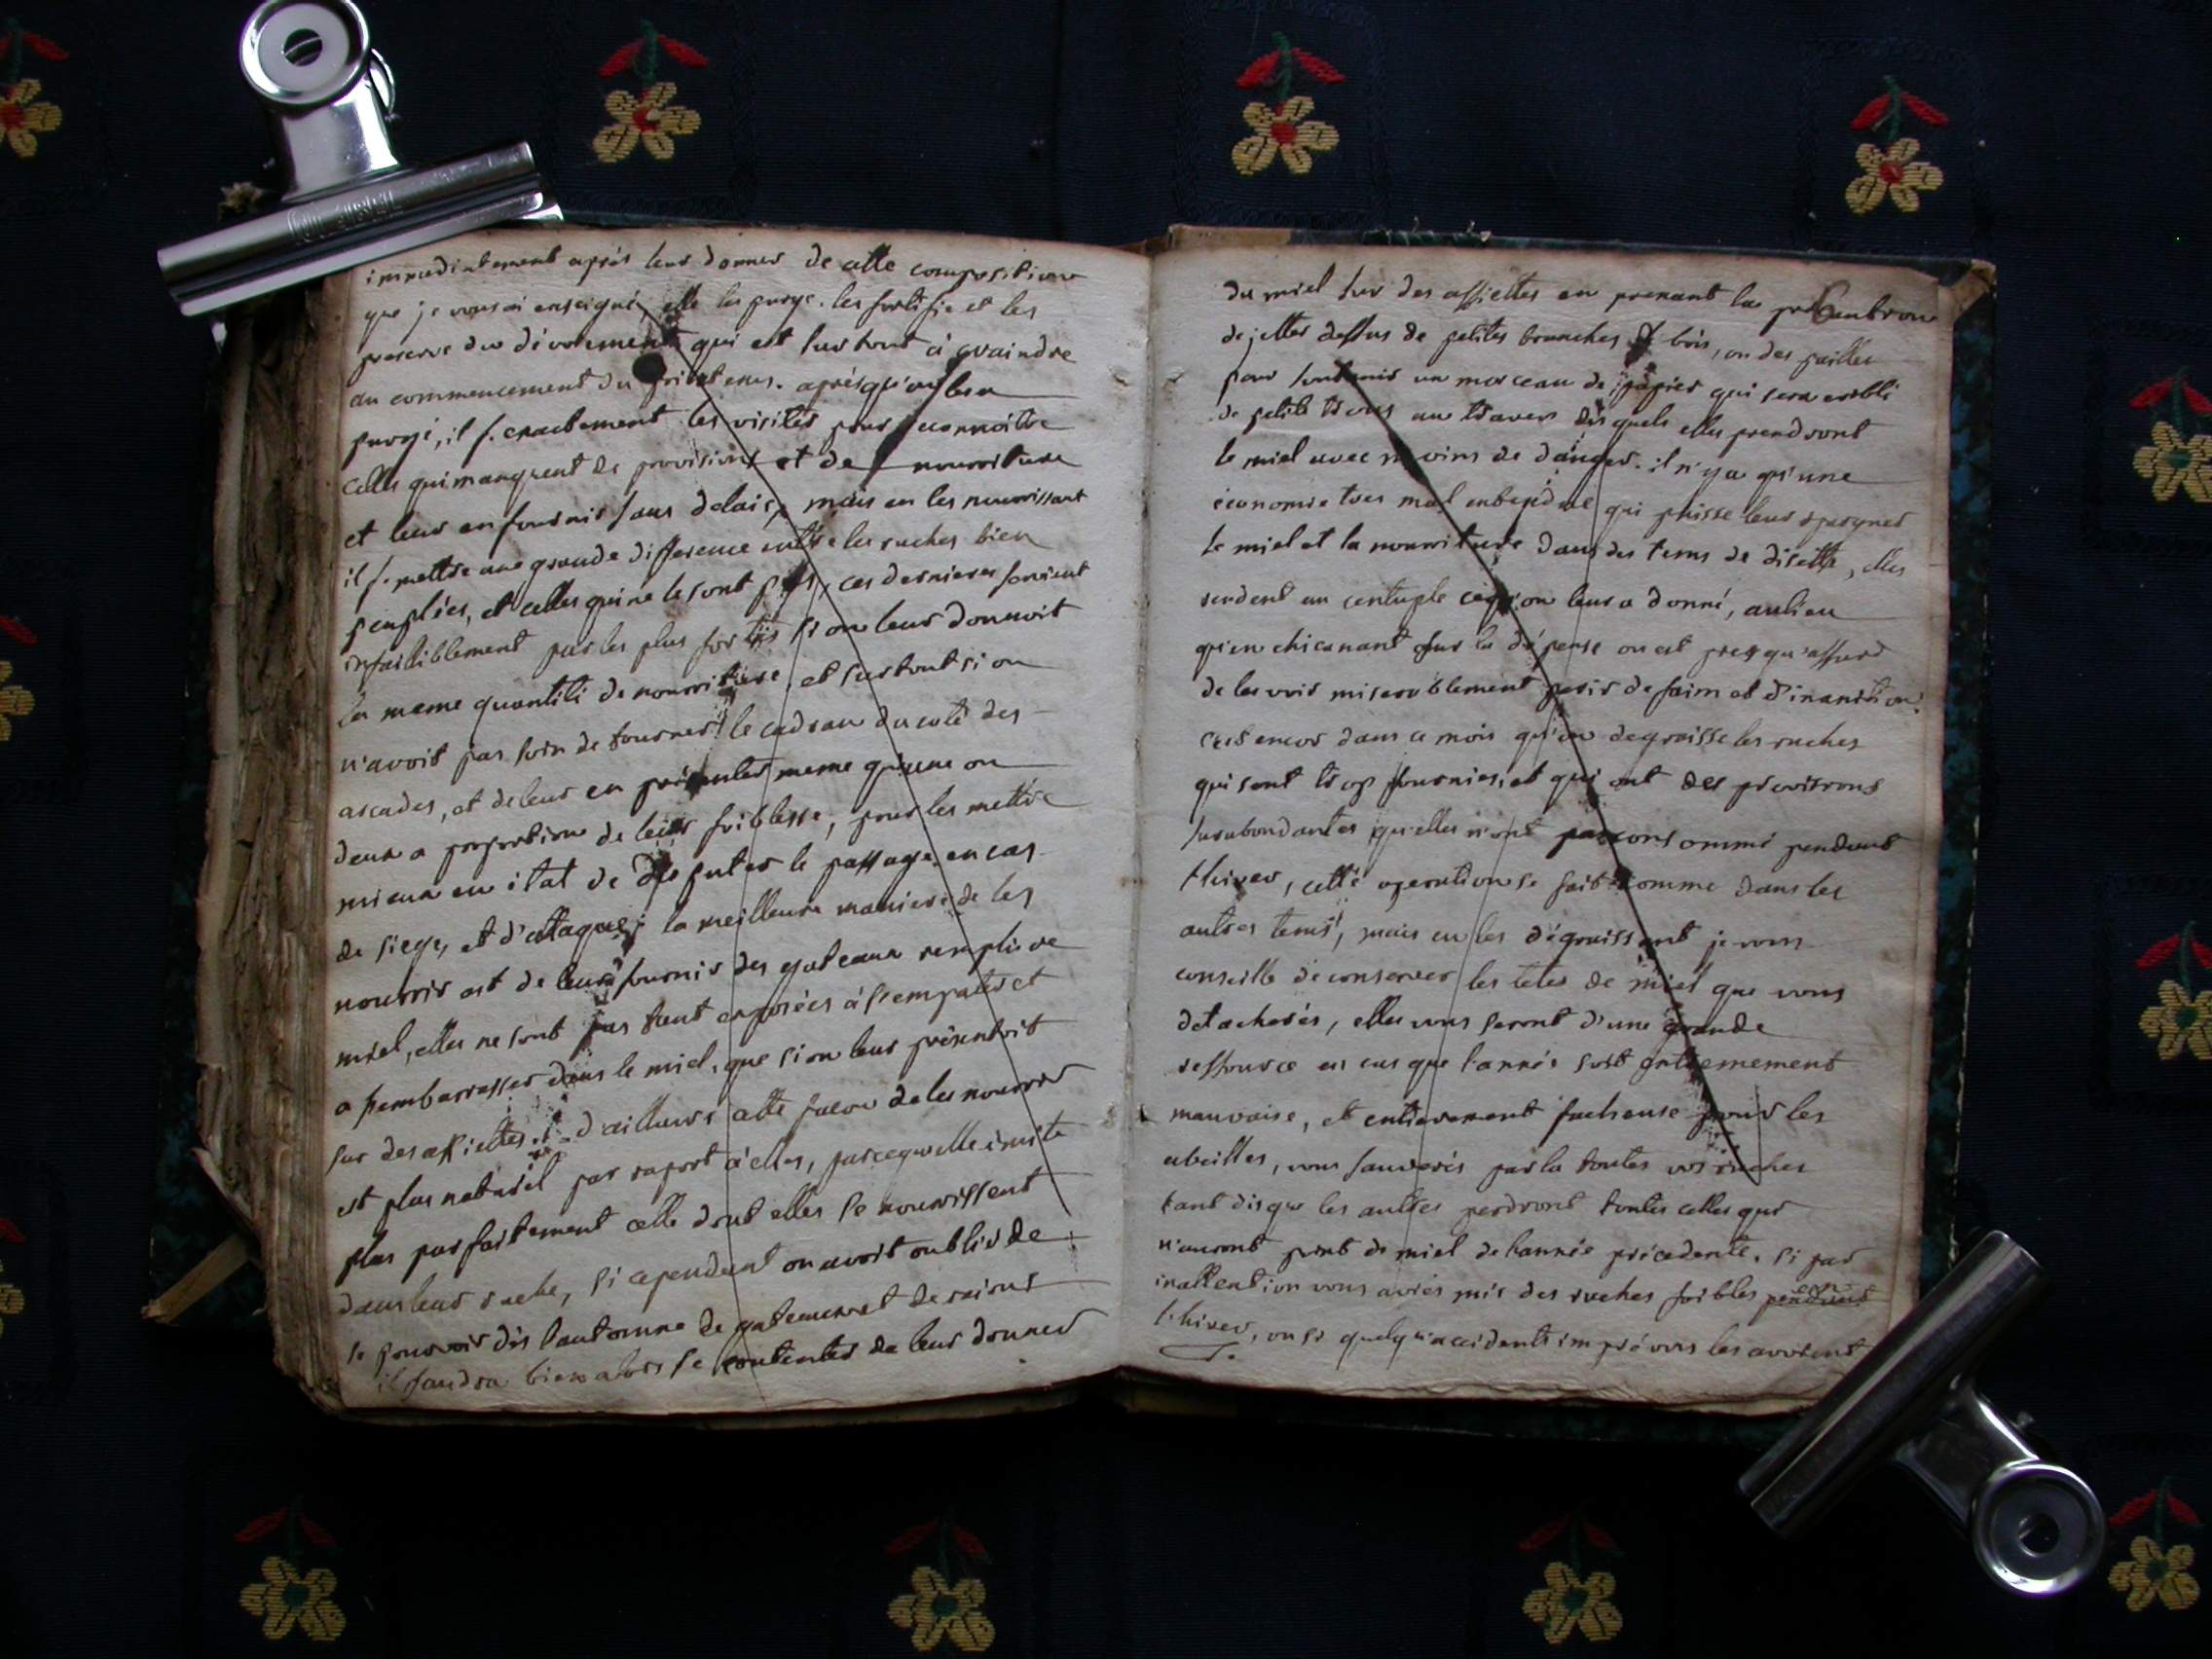 immediatement aprés leur donner de cette composition
que je vous ai enseigné, elle les purge, les fortifie et les
preserve du dévoiement qui est surtout à craindre
au commencement du printems. aprés qu'on les a
purgé, il f. exactement les visiter pour reconnoitre
celles qui manquent de provisions et de nourriture
et leur en fournir sans delais, mais en les nourrissant
il f. mettre une grande difference entre les ruches bien
peuplées, et celles qui ne le sont pas, ces dernieres seroient
infailliblement par les plus fortes si on leur donnoit
la meme quantité de nourriture, et surtout si on
n'avoit pas soin de tourner le cadran du coté des
arcades, et de leur en présenter meme qu'une ou
deux a proportion de leur foiblesse, pour les mettre
mieux en état de disputer le passage en cas
de siege, et d'attaque; la meilleure maniere de les
nourrir est de leur fournir des gateaux remplis de
miel, elles ne sont pas tant exposées à s'empater et
a s'embarrasser dans le miel, que si on leur présentoit
sur des assiettes. d'ailleurs cette facon de les nourrir
est plus naturel par raport à elles, parcequ'elle imite
plus parfaitement celle dont elles se nourrissent
dans leur ruche, si cependant on avoit oublié de
se pourvoir dés l'automne de gateaux et de raions
il faudra bien alors se contenter de leur donner
du miel sur des assiettes en prenant la précaution
de jetter dessus de petites branches de bois, ou des pailles
pour soutenir un morceau de papier qui sera criblé
de petits trous au travers des quels elles prendront
le miel avec moins de danger. il n'y a qu'une
économie tres mal entendue qui puisse leur épargner
le miel et la nourriture dans des tems de disette, elles
rendent au centuple ce qu'on leur a donné, aulieu
qu'en chicanant sur la dépense on est presqu'assuré
de les voir miserablement perir de faim et d'inanition.
c'est encor dans ce mois qu'on degraisse les ruches
qui sont trop fournies, et qui ont des provisions
surabondantes qu'elles n'ont pas consommé pendant
l'hiver, cette operation se fait comme dans les
autres tems, mais en les dégraissant je vous
conseille de conserver les tetes de miel que vous
detacherés, elles vous seront d'une grande
ressource en cas que l'année soit extremement
mauvaise, et entierement facheuse pour les
abeilles, vous sauverés par la toutes vos ruches
tant disque les autres perdront toutes celles qui
n'auront point de miel de l'année précedente. si par
inattention vous aviés mis des ruches foibles pendant
l'hiver, ou si quelqu'accidents imprévus les avoient